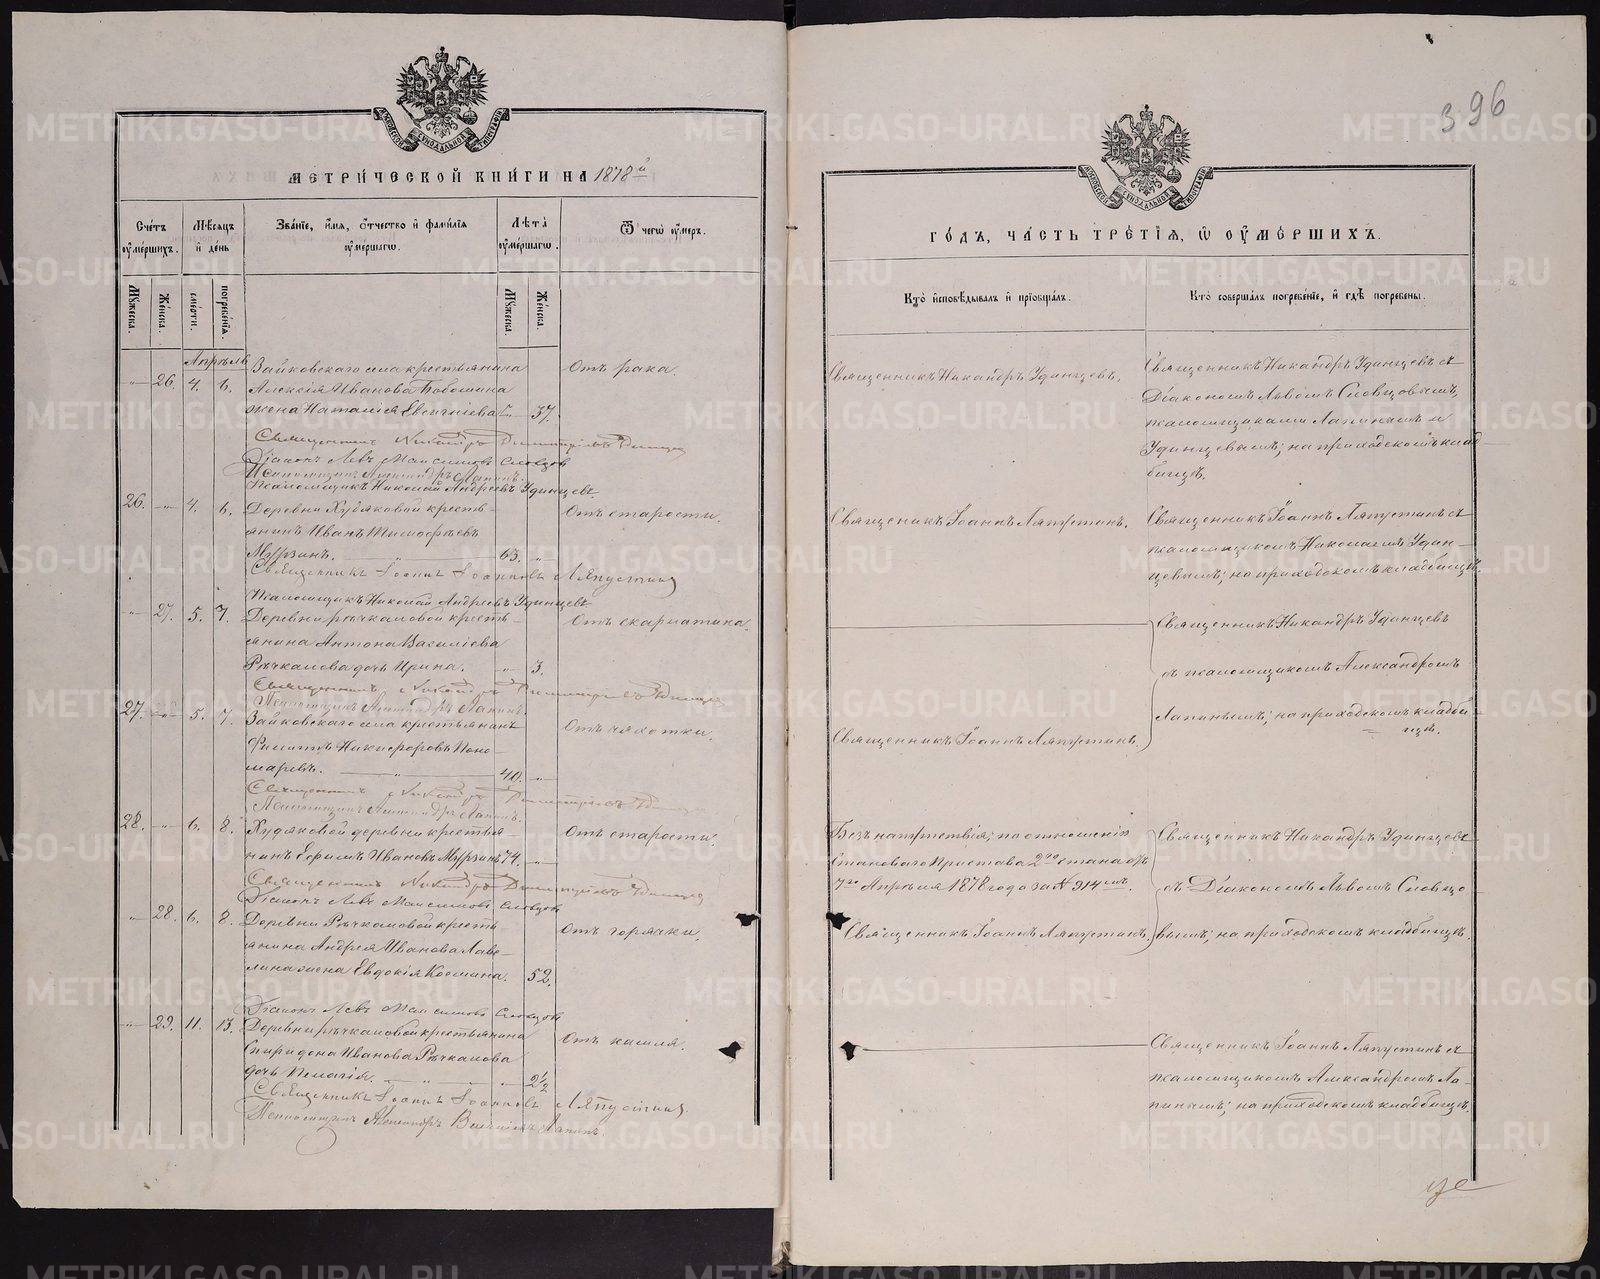 МЕТРИЧЕСКОЙ КНИГИ НА 1878й
Счетъ умершихъ.
Мѣсяцъ и день
Званіе, имя, отчество и фамилія умершаго.
Лѣта умершаго.
Ѿ чегѡ умеръ.
Мужеска.
Женска.
смерти.
погребенія.
Мужеска.
Женска.
Апрѣль
Зайковскаго села крестьянина
Отъ рака.
„ 26. 4. 6. Алексія Иванова
жена Наталія Евсигніева „ 37.
Священникъ Никандръ Димитріевъ Удинцевъ
Діаконъ Левъ Максимовъ Словцовъ
Псаломщикъ Александръ Лапинъ.
Псаломщикъ Николай Андреевъ Удинцевъ
26. „ 4. 6. Деревни Худяковой кресть-
Отъ старости.
янинъ Иванъ Тимофѣевъ
Мурзинъ. 63. „
Священникъ Іоаннъ Іоанновъ Ляпустинъ
Псаломщикъ Николай Андреевъ Удинцевъ
„ 27. 5. 7. Деревни Рѣчкаловой кресть-
Отъ скарлатина.
янина Антона Василіева
Рѣчкалова дочь Ирина. „ 3.
Священникъ Никандръ Димитріевъ Удинцевъ
Псаломщикъ Александръ Лапинъ
27. „ 5. 7. Зайковскаго села крестьянинъ
Отъ чахотки.
Филиппъ Никифоровъ Поно-
маревъ. „ 40. „
Священникъ Никандръ Димитріевъ Удинцевъ
Псаломщикъ Александръ Лапинъ.
28. „ 6. 8. Худяковой деревни крестья-
Отъ старости.
нинъ Ефимъ Ивановъ Мурзинъ 74. „
Священникъ Никандръ Димитріевъ Удинцевъ
Діаконъ Левъ Максимовъ Словцовъ
„ 28. 6. 8. Деревни Рѣчкаловой кресть-
Отъ горячки.
янина Андрея Иванова Лаве-
лина жена Евдокія Косьмина. 52.
Діаконъ Левъ Максимовъ Словцовъ
„ 29. 11. 13. Деревни Рѣчкаловой крестьянина
Отъ кашля.
Спиридона Иванова Рѣчкалова
дочь Пелагія. „ „ „ 2½
Священникъ Іоаннъ Іоанновъ Ляпустинъ.
Псаломщикъ Александръ Васильевъ Лапинъ.
396
ГОДЪ, ЧАСТЬ ТРЕТІЯ, Ѡ УМЕРШИХЪ.
Кто исповѣдывалъ и пріобщалъ.
Кто совершалъ погребеніе, и гдѣ погребены.
Священникъ Никандръ Удинцевъ.
Священникъ Никандръ Удинцевъ съ
Діакономъ Львомъ Словцовымъ,
псаломщиками Лапинымъ и
Удинцевымъ; на приходскомъ клад-
бищѣ.
Священникъ Іоаннъ Ляпустинъ.
Священникъ Іоаннъ Ляпустинъ съ
псаломщикомъ Николаемъ Удин-
цевымъ; на приходскомъ кладбищѣ.
Священникъ Никандръ Удинцевъ
съ псаломщикомъ Александромъ
Лапинымъ; на приходскомъ кладби-
щѣ.
Священникъ Іоаннъ Ляпустинъ.
Безъ напутствія; по отношенію
Становаго Пристава 2го стана отъ
7го Апрѣля 1878 года за № 914мъ.
Священникъ Никандръ Удинцевъ
съ Діакономъ Львомъ Словцо-
вымъ; на приходскомъ кладбищѣ.
Священникъ Іоаннъ Ляпустинъ.
Священникъ Іоаннъ Ляпустинъ съ
псаломщикомъ Александромъ Ла-
пинымъ; на приходскомъ кладбищѣ.
METRIKI.GASO-URAL.RU